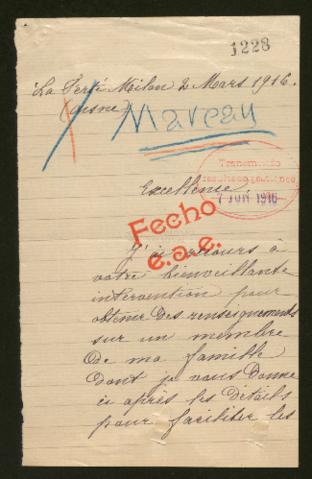 1228
La Ferté Milon 2 Mars 1916.
(Aisne)
Mareau
Excellence,
Transmitido
7 JUN 1916
Fecho
e.a.e.
J'ai recours à
votre bienveillante
intervention pour
obtenir des renseignements
sur un membre
de ma famille
dont je vous donne
ci après les détails
pour faciliter les